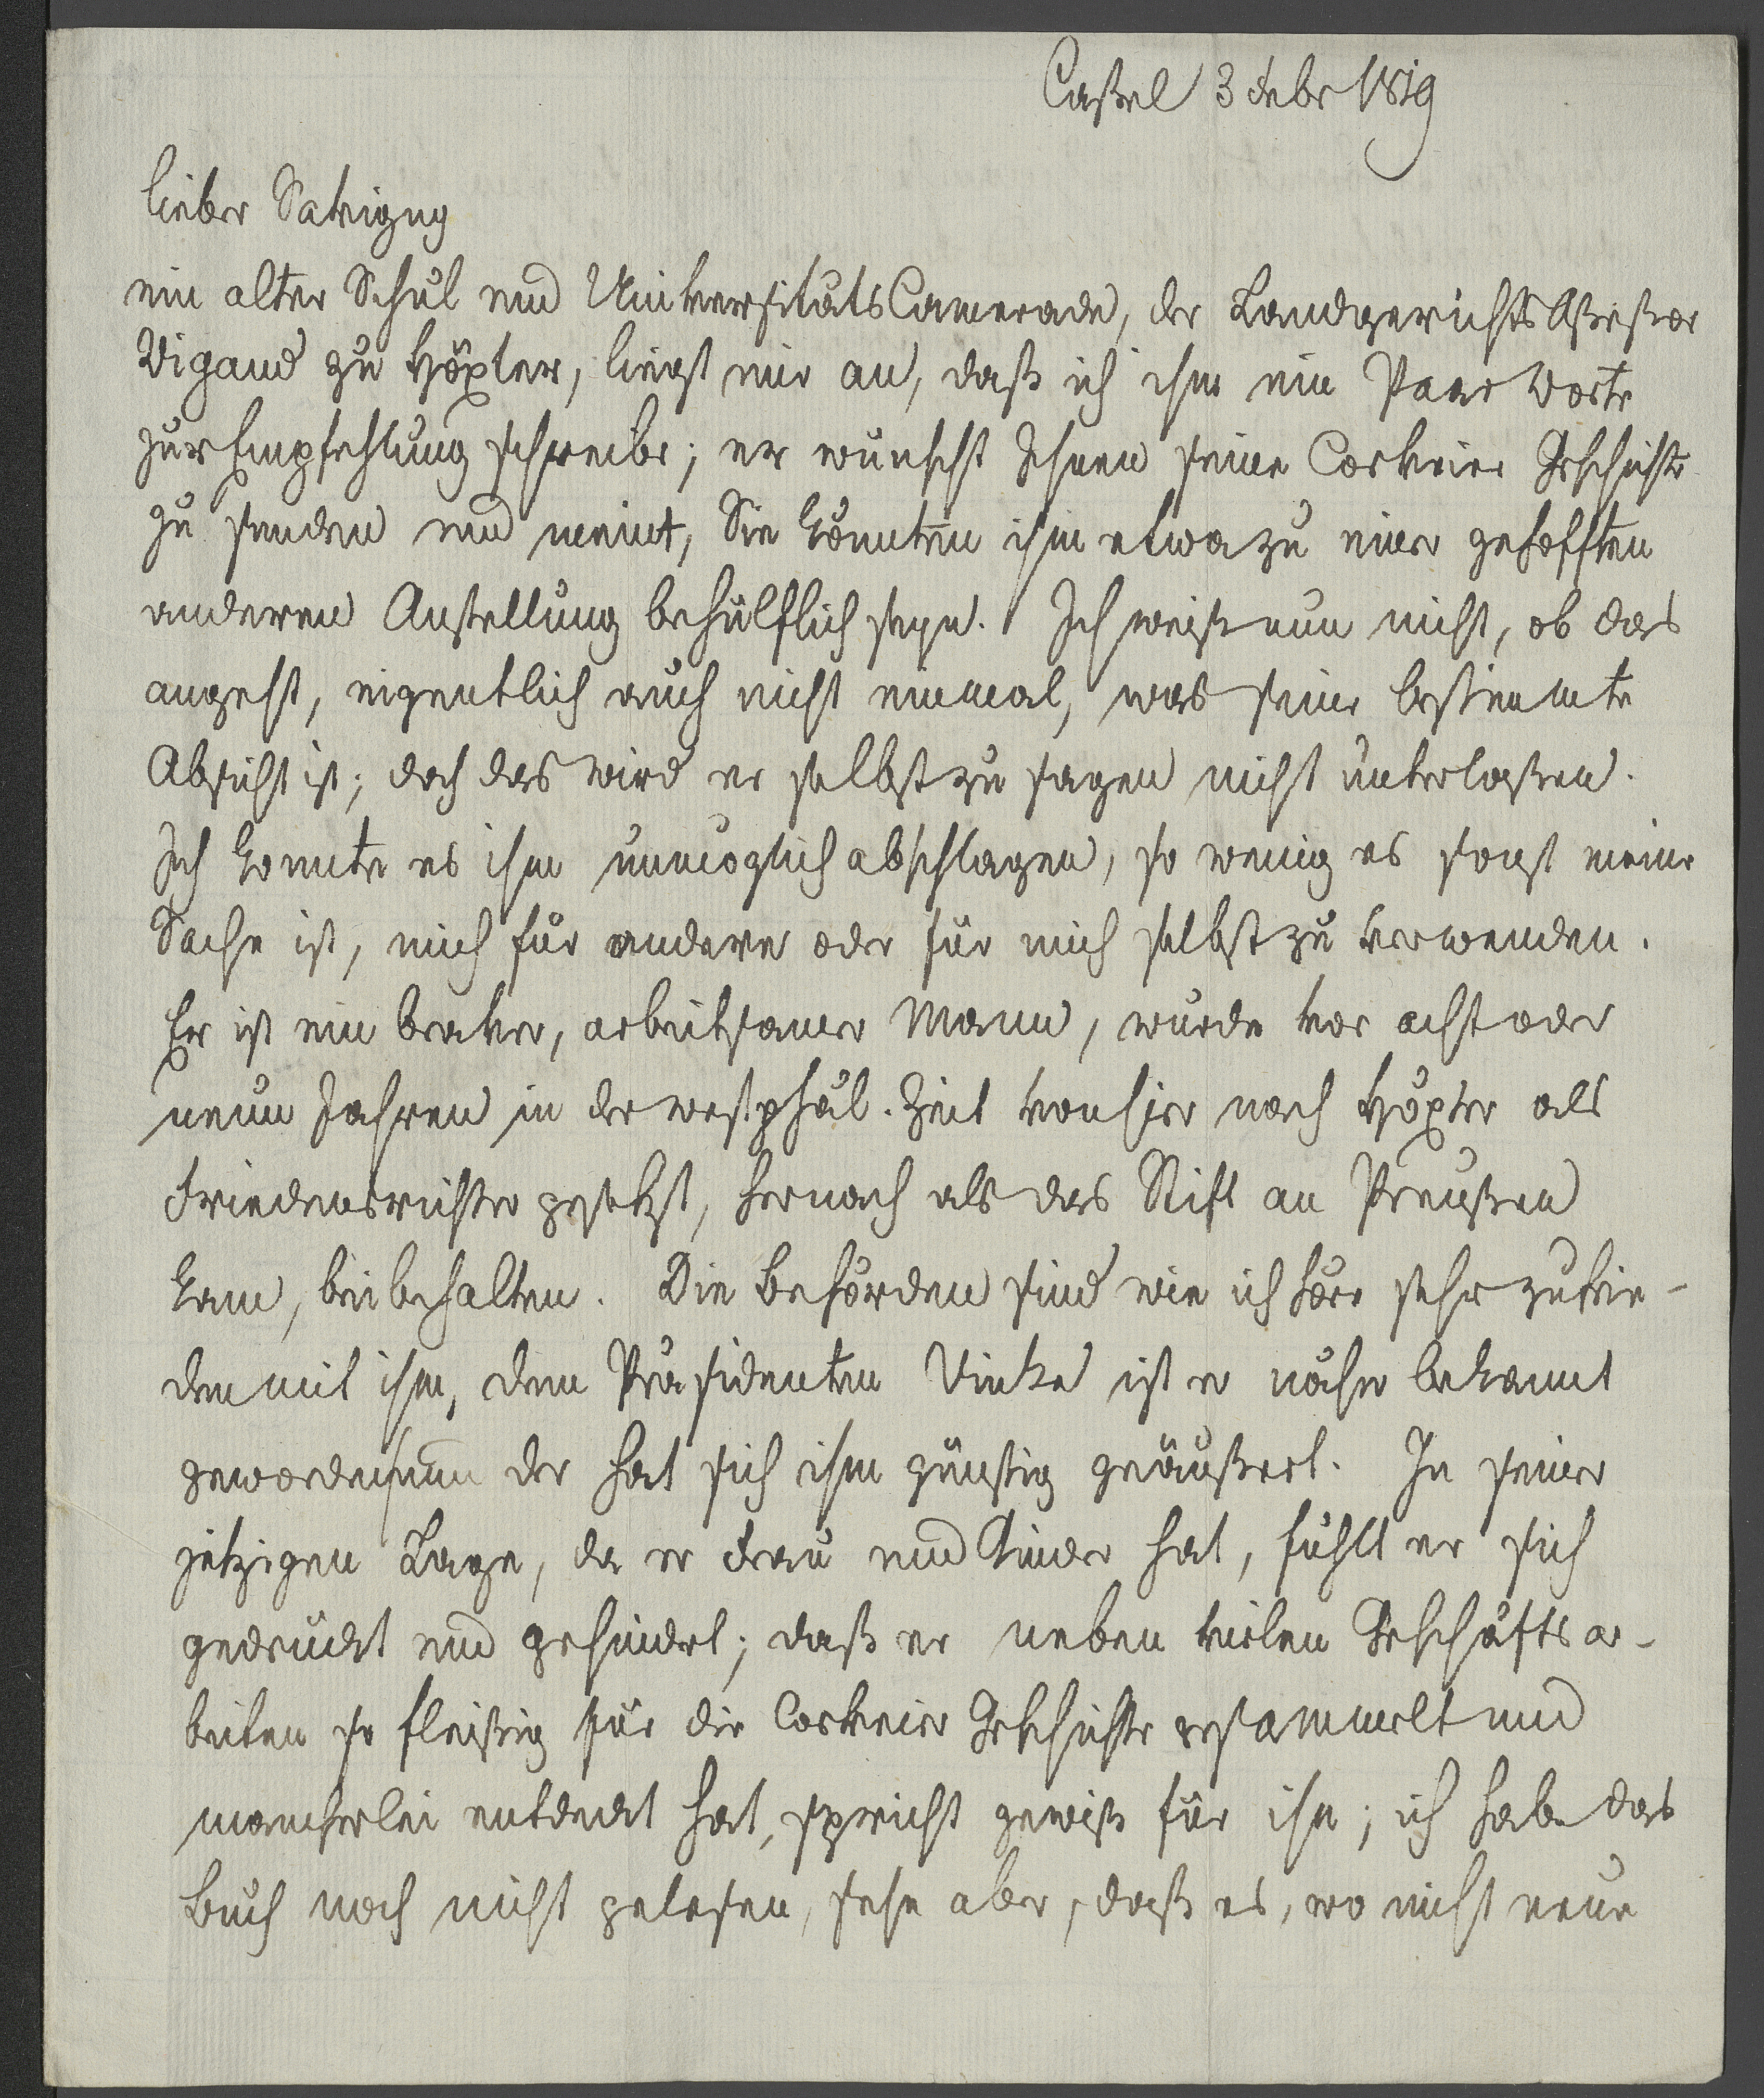 Cassel 3 Febr 1819
lieber Savigny
ein alter Schul und UniversitätsCamerade, der LandgerichtsAssessor
Wigand zu Höxter, liegt mir an, daß ich ihm ein Paar Worte
zur Empfehlung schreibe; er wünscht Ihnen seine Corveier Geschichte
zu senden und meint, Sie könnten ihm etwa zu einer gehofften
anderen Anstellung behülflich seyn. Ich weiß nun nicht, ob das
angeht, eigentlich auch nicht einmal, was seine bestimmte
Absicht ist; doch das wird er selbst zu sagen nicht unterlaßen.
Ich konnte es ihm unmöglich abschlagen, so wenig es sonst meine
Sache ist, mich für andere oder für mich selbst zu verwenden.
Er ist ein braver, arbeitsamer Mann, wurde vor acht oder
neun Jahren in der westphäl. Zeit von hier nach Höxter als
Friedensrichter gesetzt, hernach als das Stift an Preußen
kam, beibehalten. Die Behörden sind wie ich höre sehr zufrie-
den mit ihm, dem Präsidenten Vinke ist er näher bekannt
geworden und der hat sich ihm günstig geäußert. In seiner
jetzigen Lage, da er Frau und Kinder hat, fühlt er sich
gedrückt und gehindert; daß er neben vielen Geschäftsar-
beiten so fleißig für die Corveier Geschichte gesammelt und
mancherlei entdeckt hat, spricht gewiß für ihn; ich habe das
Buch noch nicht gelesen, sehe aber, daß es, wo nicht neue